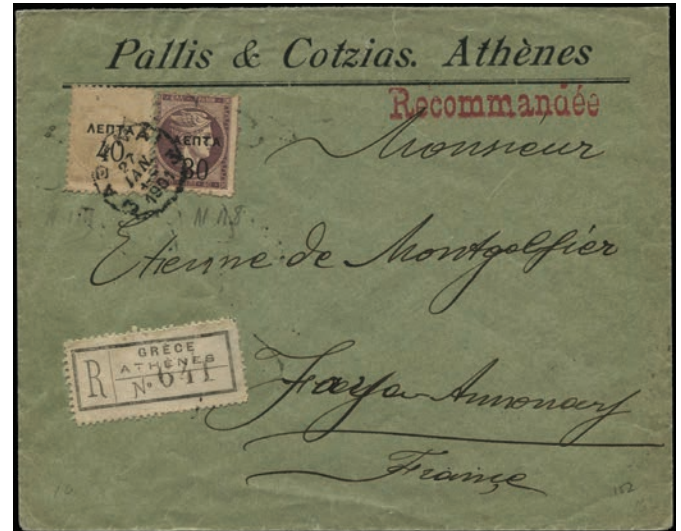 Pallis & Cotzias. Athènes
Recommandée
ΛΕΠΤΑ
40
ΛΕΠΤΑ
30
27
ΙΑΝ.
1901
Monsieur
Etienne de Montgolfier
GRÈCE
ATHÈNES
R
Nº 641
Annonay
France
102